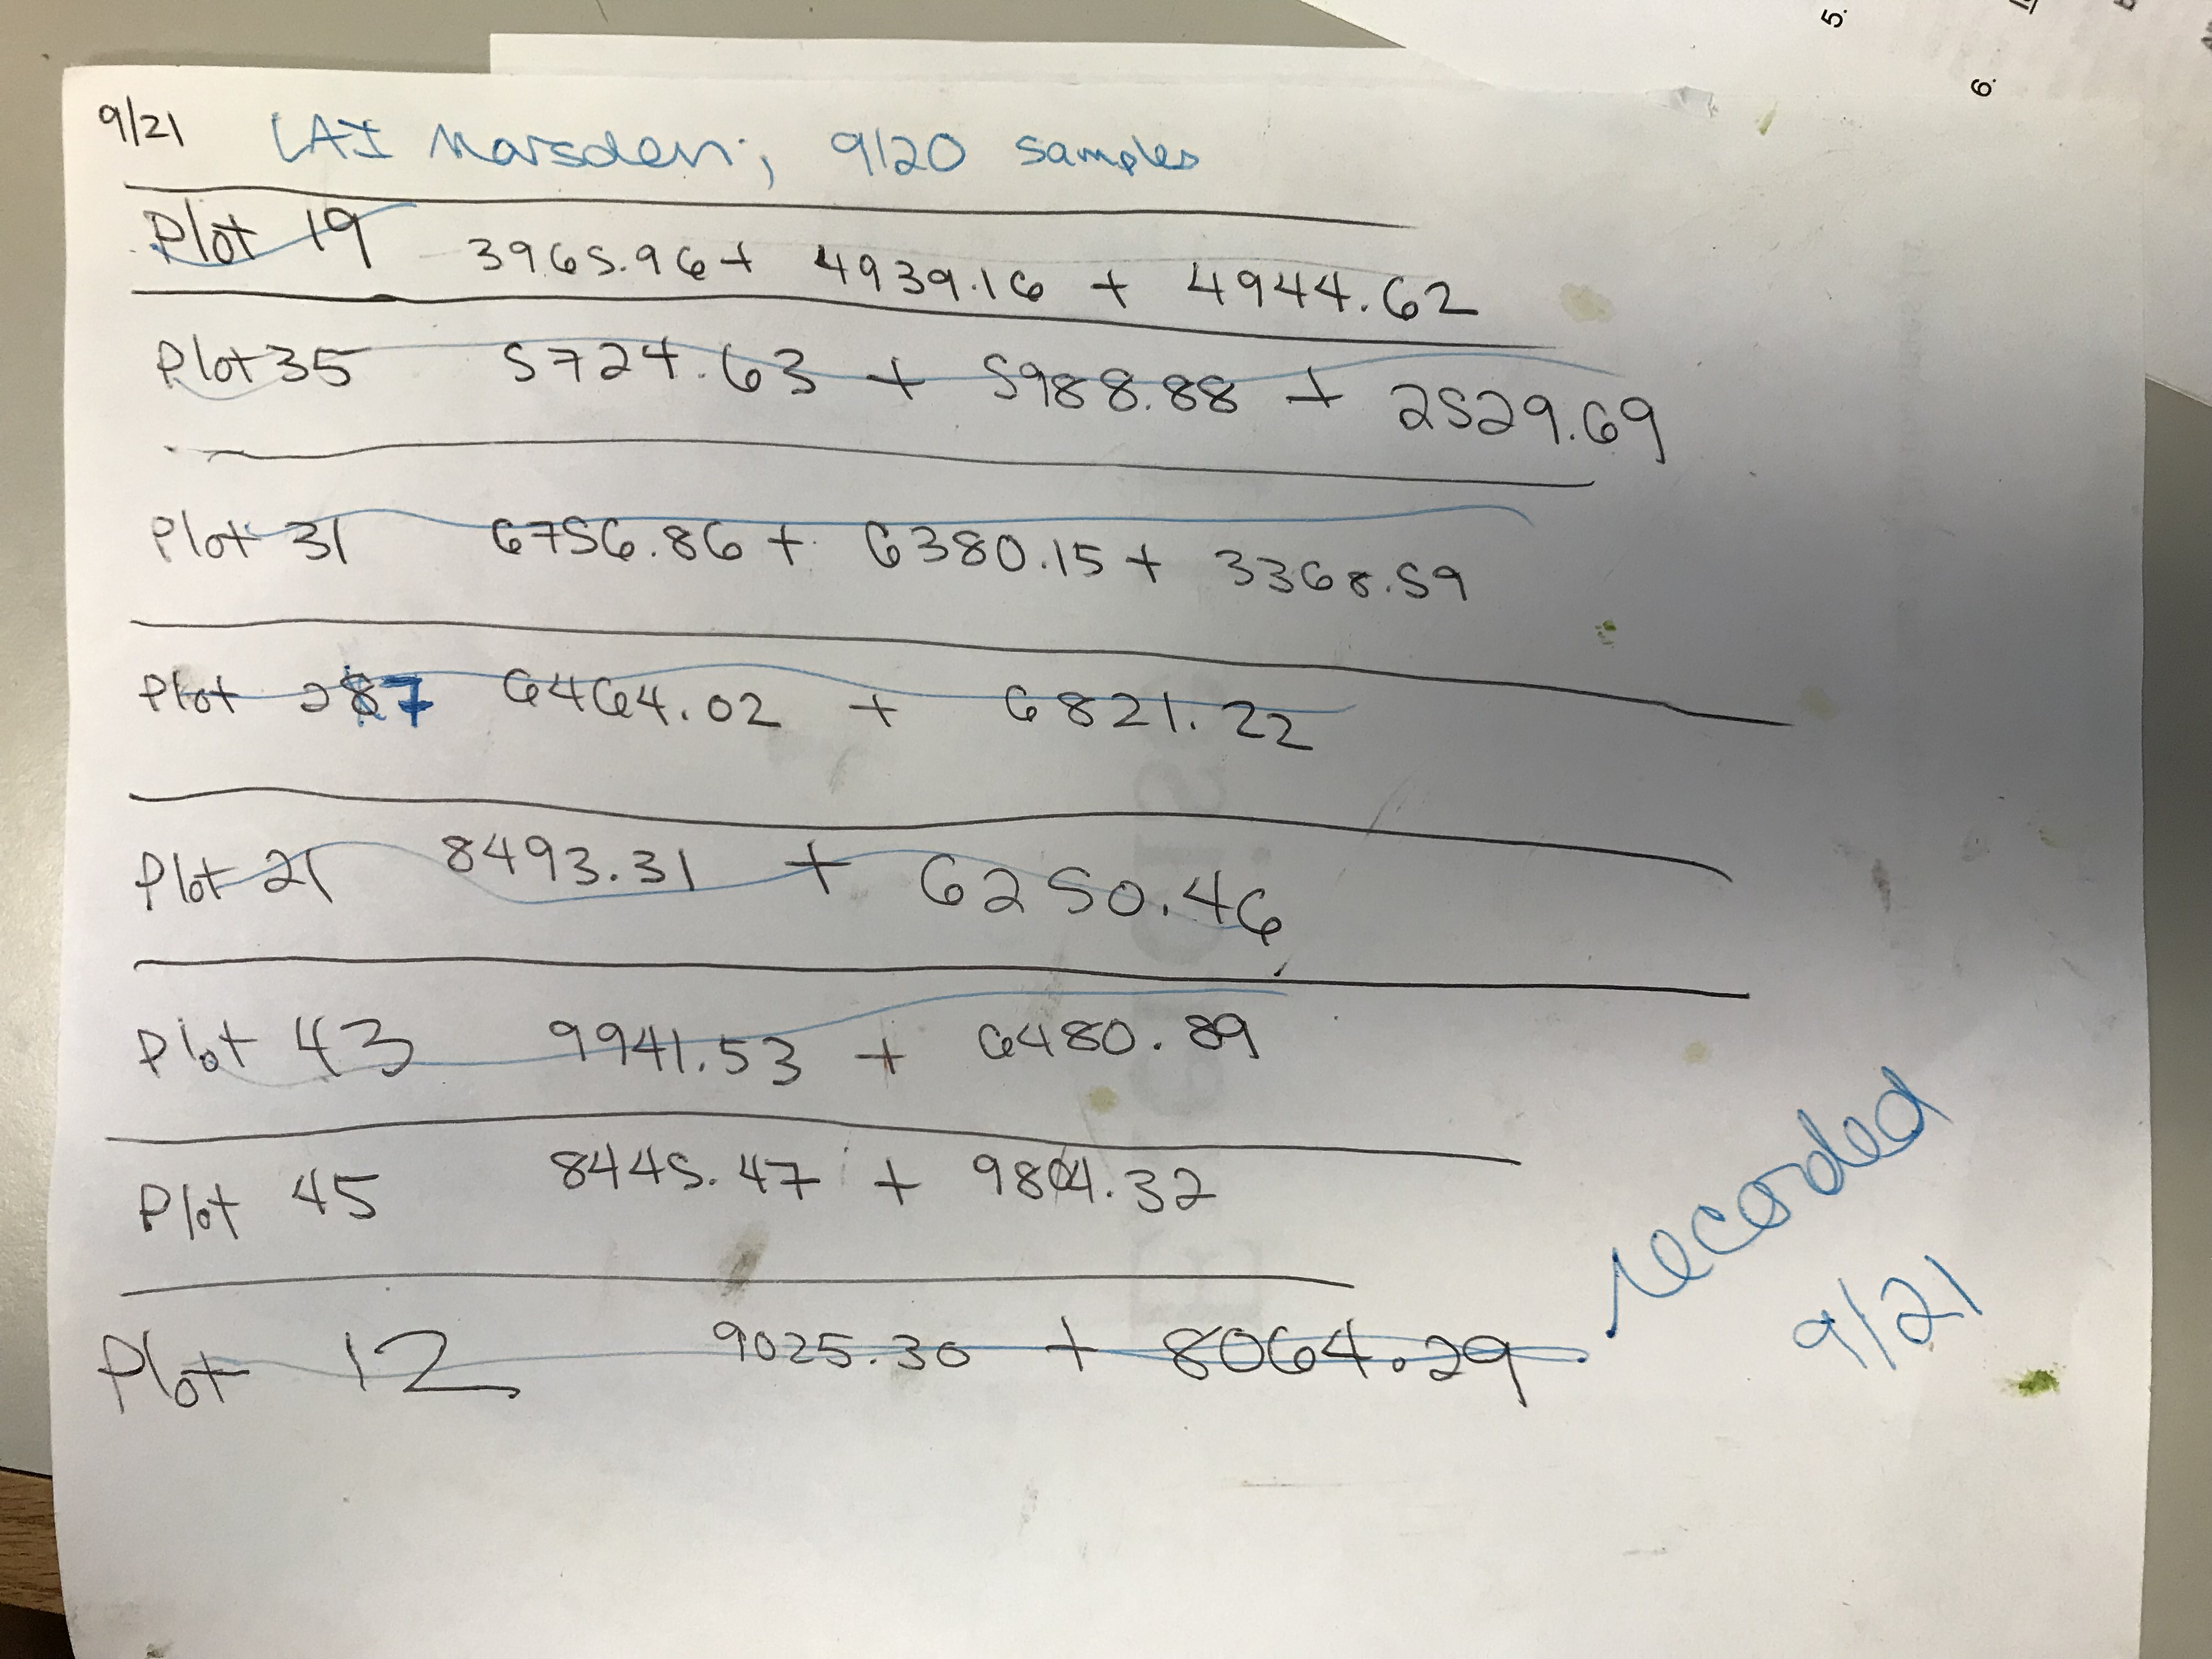 9/21 LAI Marsden; 9/20 samples
Plot 19 3965.96 + 4939.16 + 4944.62
Plot 35 5724.63 + 5988.88 + 2529.69
Plot 31 6756.86 + 6380.15 + 3368.59
Plot 27 6464.02 + 6821.22
Plot 21 8493.31 + 6250.46
Plot 43 9941.53 + 6480.89
Plot 45 8445.47 + 9804.32
Plot 12 9025.30 + 8064.29
recorded
9/21
5.
6.